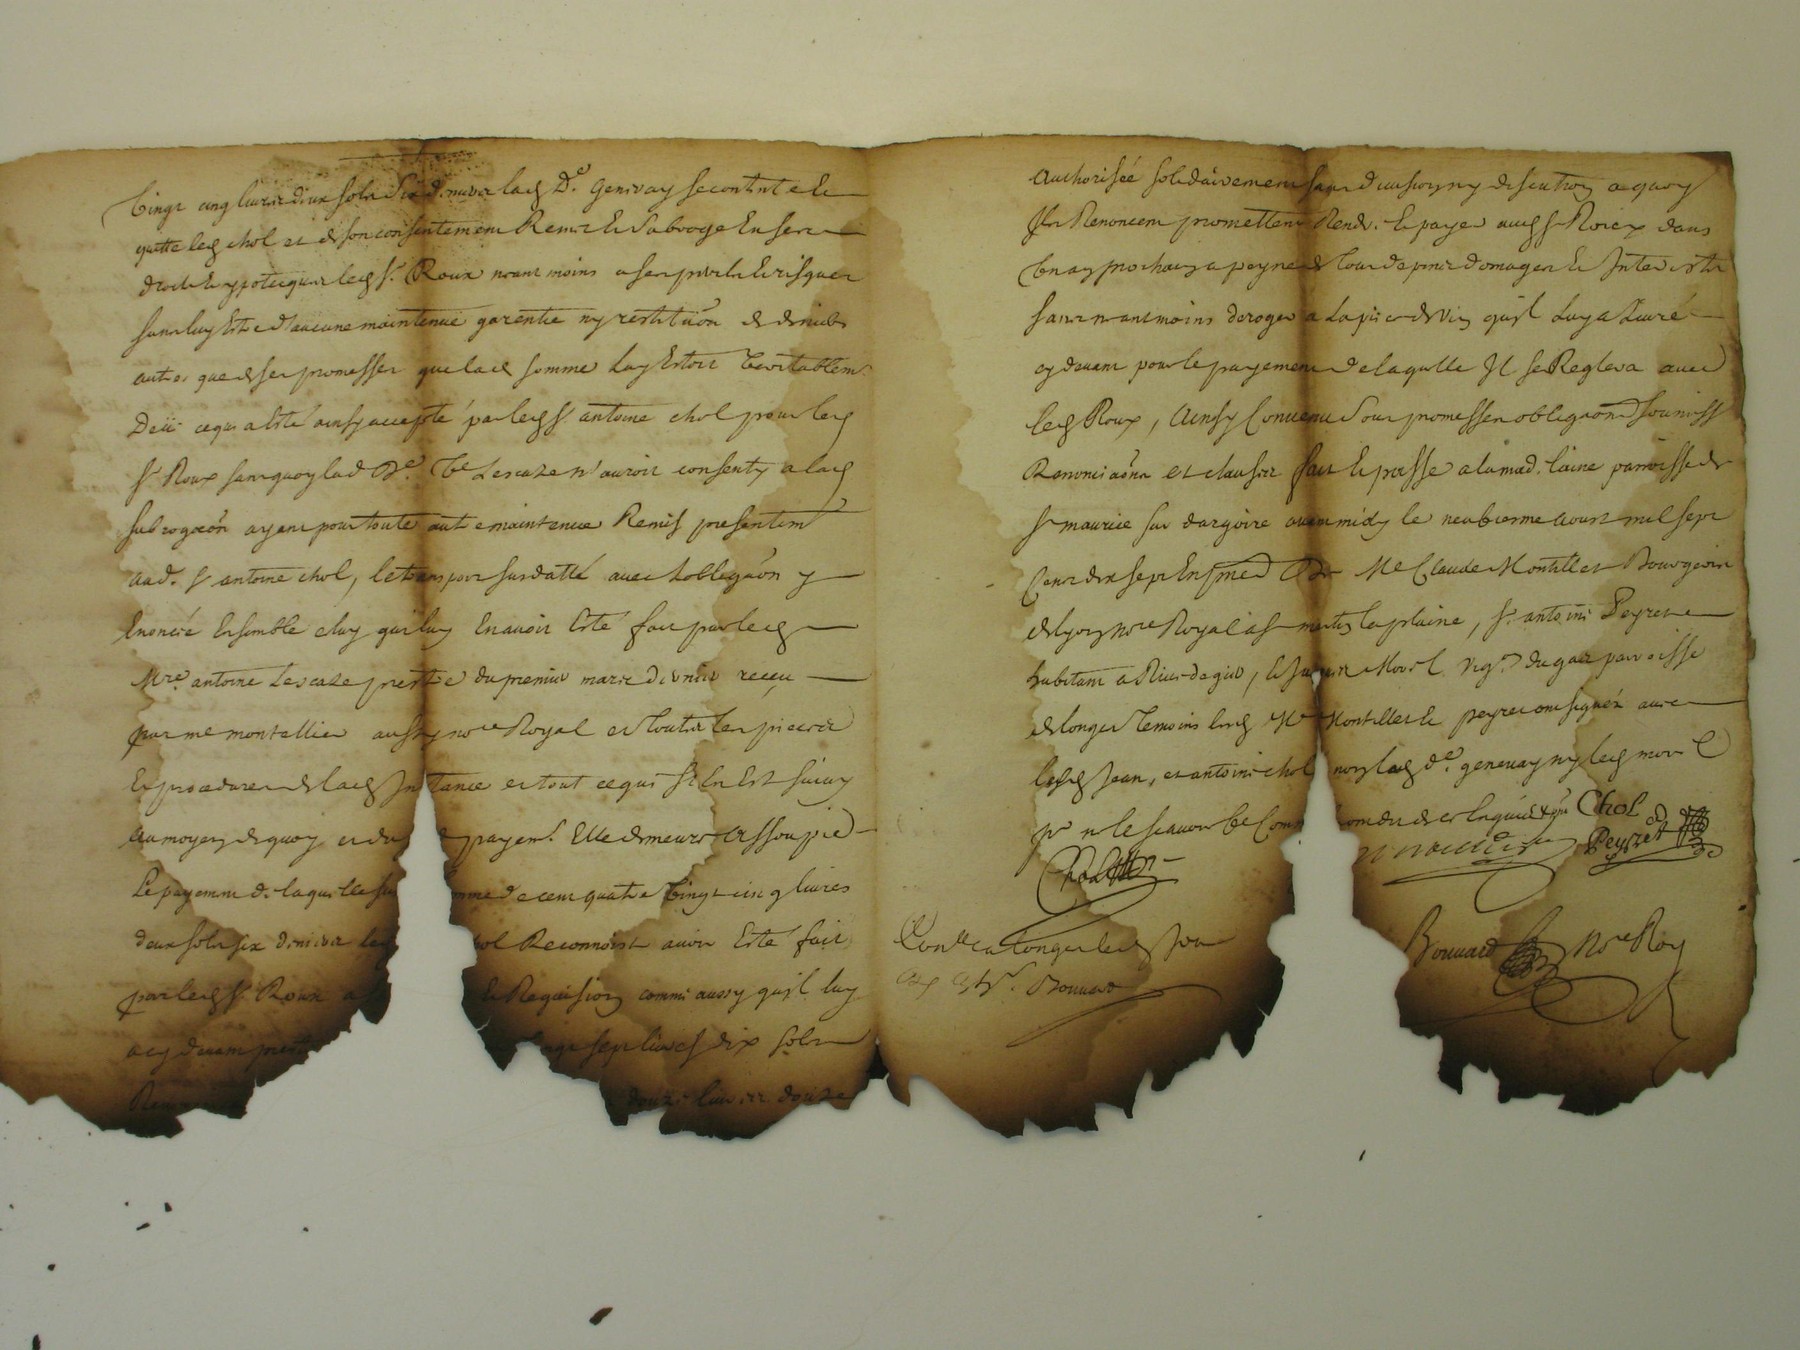 Vingt cinq livres deux sols Six d. niers lad De. Genevay se contente Et
quitte led chol et de son consentement Remet Et Subroge En ses
droits Et ypoteques led Sr. Roux neant moins a ses perils Et risques
sans luy Estre d'aucune maintenue garentie ny restitūon de deniers
autre que de ses promesses que lad somme luy Estoit veritablemt
Deüe ce qui a Esté ainsy accepté par led Sr antoine chol pour led
Sr Roux sans quoy lad De. Ve Lescaze n'auroit consenty a lad
subrogaōn ayant pour toute autre maintenue Remis presentemt
aud. Sr antoine chol, le transport susdatté avec l'obligaōn y
Enoncée Ensemble celuy qui luy En avoit Esté fait par led
Mre. antoine Lescaze prestre du premier mars dernier receu
par me montellier aussy nore Royal et toutes les pieces
Et procedures de lad Instance et tout ce qui s'En Est suivy
au moyen de quoy et du payemt. Elle demeure assoupie
Le payement de laquelle som mme de cent quatre vingt cinq livres
deux sols six deniers led chol Reconnoist avoir Esté fait
par led Sr. Roux a sa Et Requisition comme aussy qu'il luy
a cy devant presté vingt sept livres dix sols
Reven douze livres douze
Authorisée solidairement sans division ny discution a quoy
Ils Renoncent promettent Rendre Et payer aud Sr Roux dans
Un an prochain a peyne de tous depens domages Et Interests
sans neantmoins deroger a La piece de Vin qu'il Luy a Livré
cy devant pour le payement de laquelle Il se Reglera avec
led Roux, Ainsy Convenu sous promesses obligaōns soumiss
Renonciaōns et clauses fait Et passé a la mad. laine parroisse de
St maurice sur dargoire avant midy le neuvieme aoust mil sept
Cent dix sept En pnce De Me Claude Montellier Bourgeois
de lyon nore Royal a St martin la plaine, Sr. antoine Peyret
habitant a Rive de gier, Et Jean Morel vign. du gas parroisse
de longes temoins led Me Montellier Et peyret ont signéz avec
lesd Jean, et antoine chol non lad de. genevay ny led morel
pr ne le scavoir de Ce Enquis
Chol
Chol
Peyret
Conlle a longes led Jour
Bouuard
Bouuard nore Roy